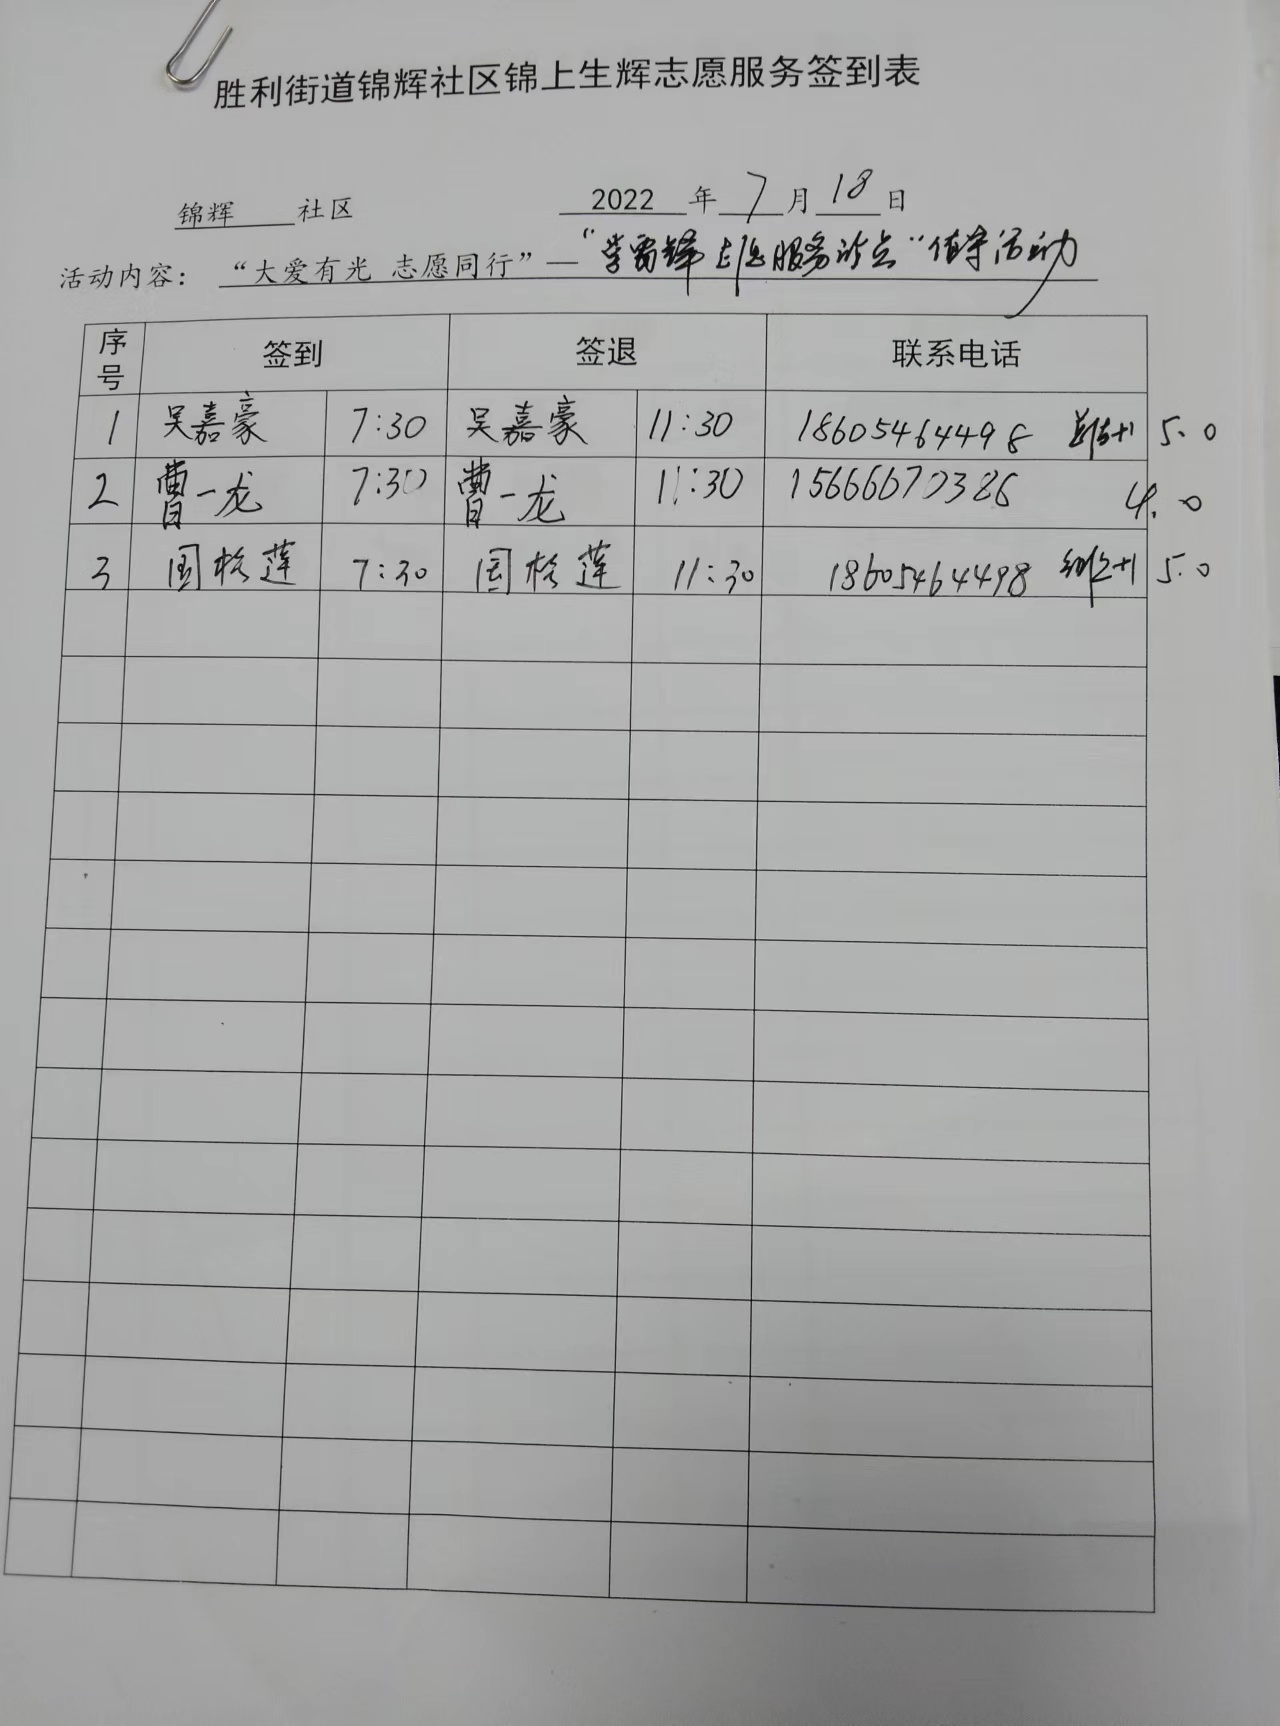 胜利街道锦辉社区锦上生辉志愿服务签到表
锦辉 社区 2022 年 7 月 18 日
活动内容：“大爱有光 志愿同行”—“学雷锋志愿服务站点”值守活动
序号 签到 签退 联系电话
1 吴嘉豪 7:30 吴嘉豪 11:30 18605464498 5.0
2 曹一龙 7:30 曹一龙 11:30 15666670386 4.0
3 国格莲 7:30 国格莲 11:30 18605464498 5.0